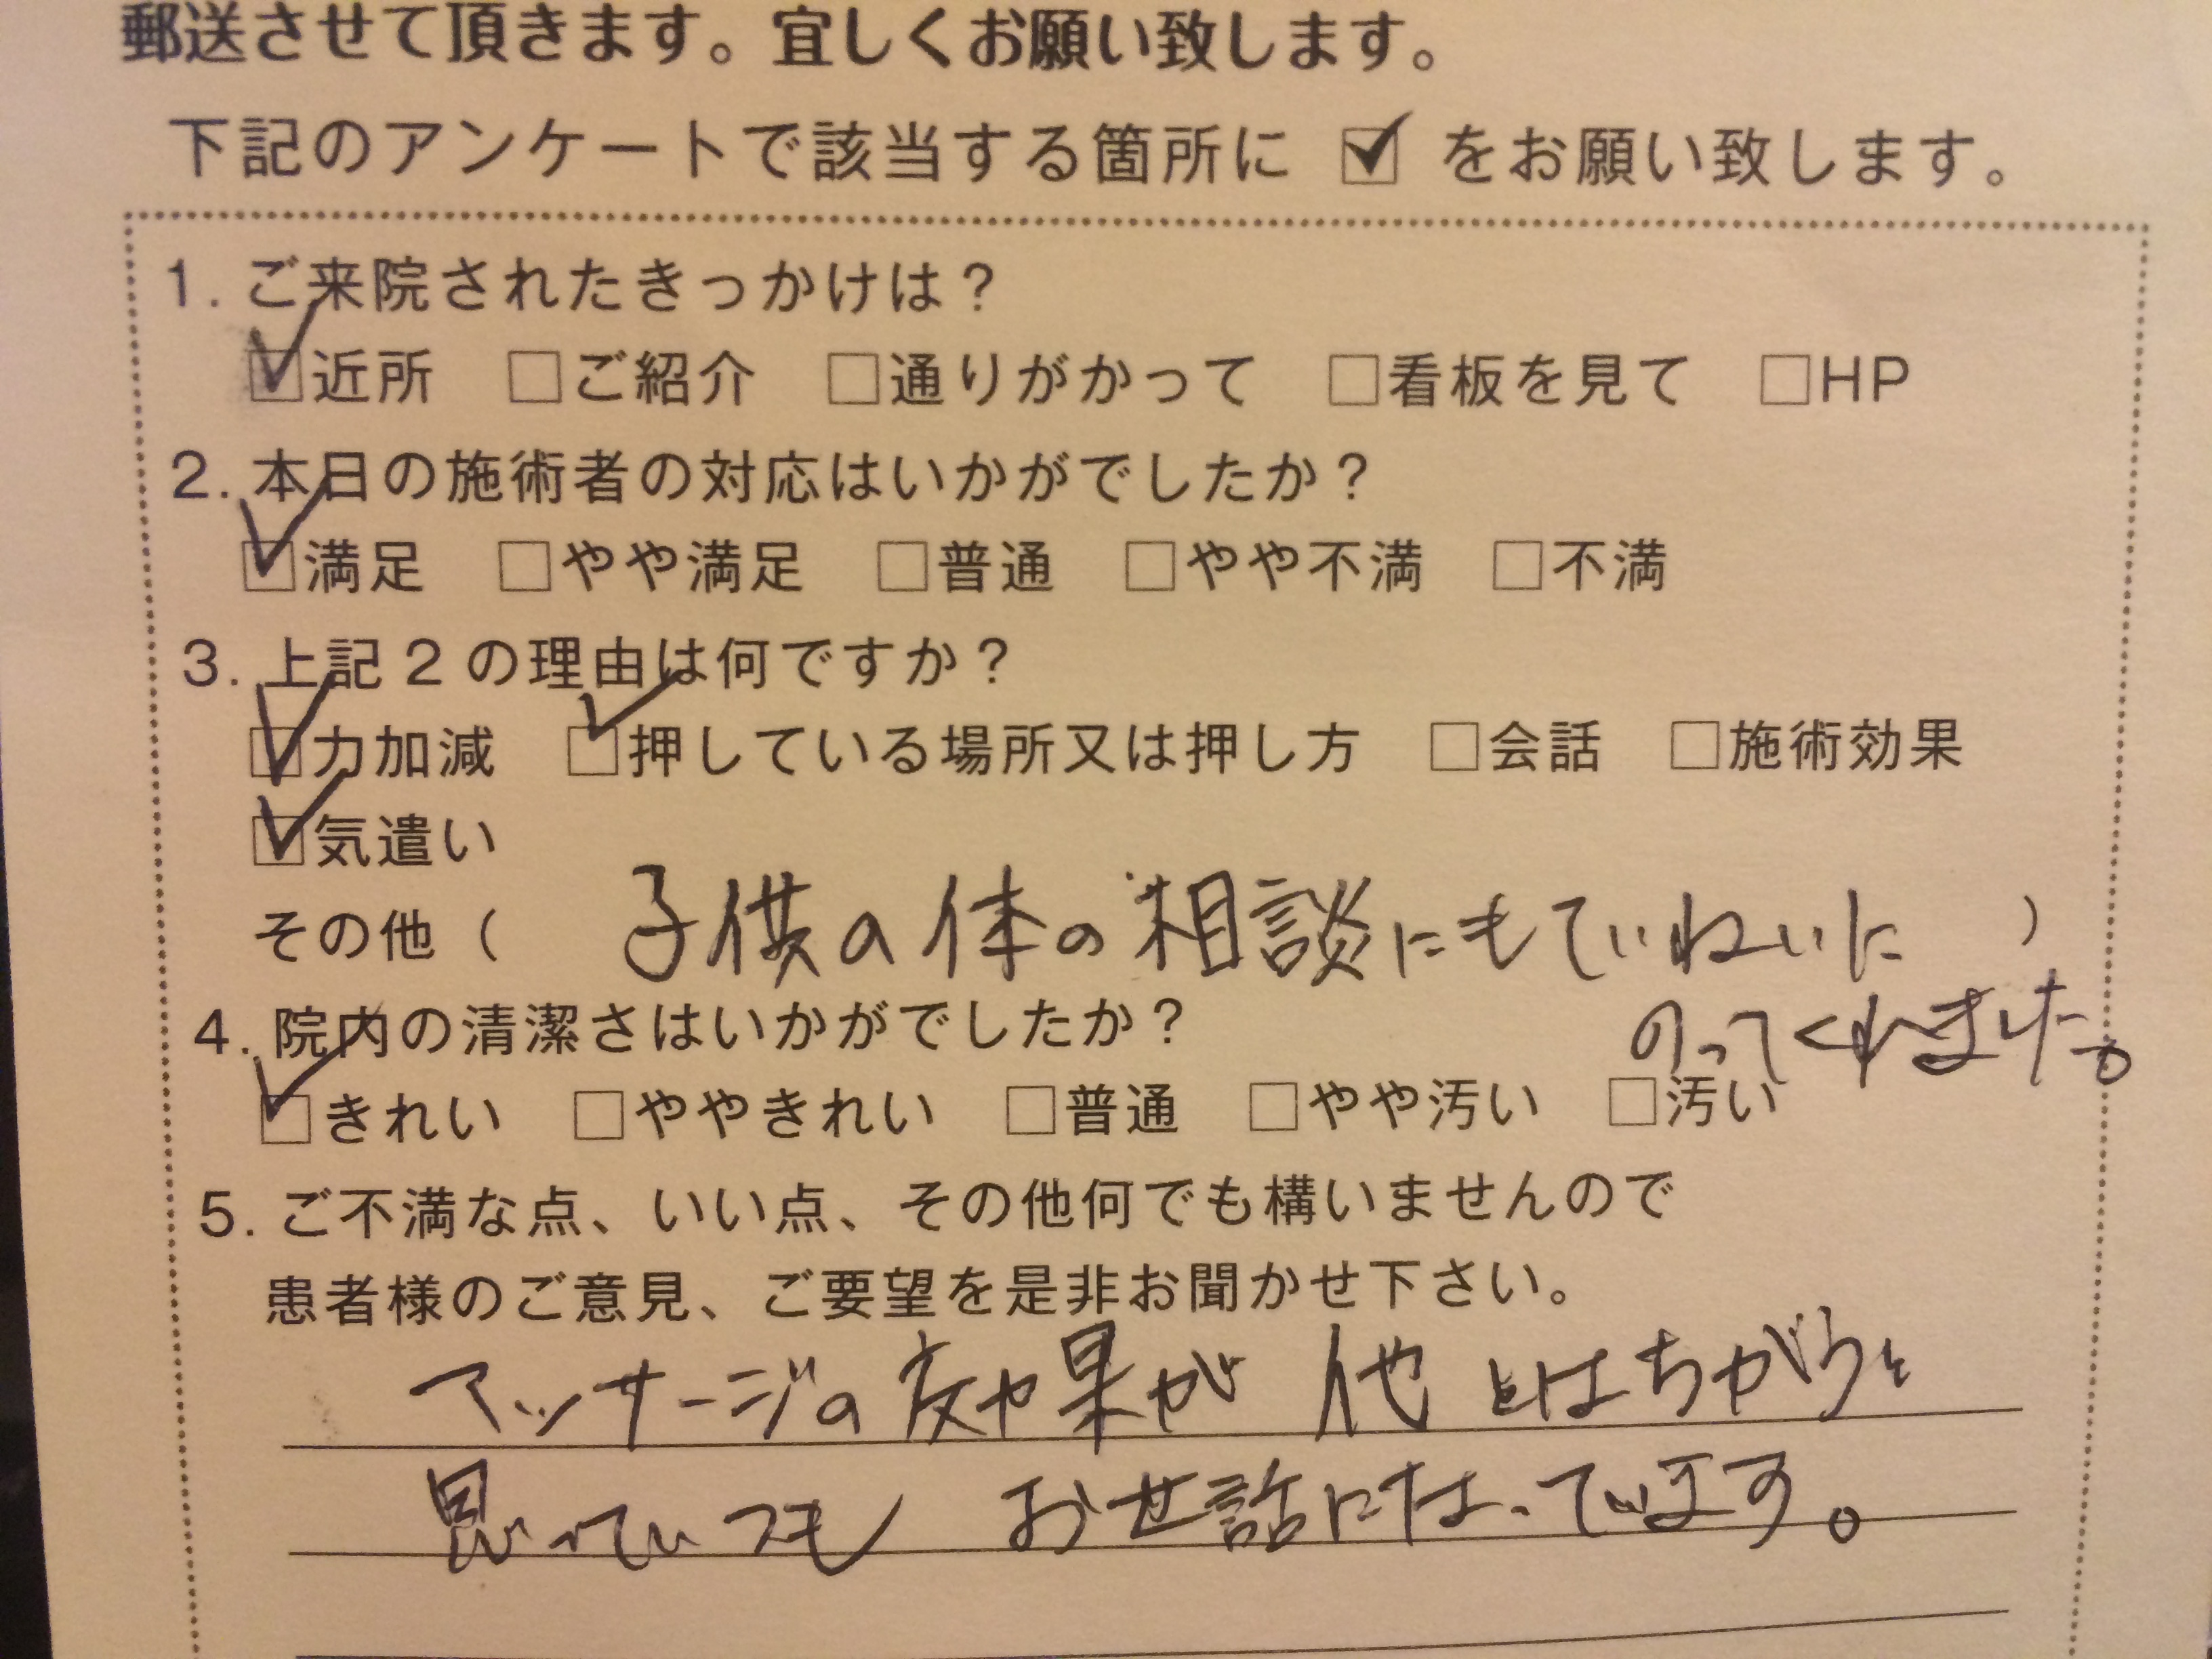 郵送させて頂きます。宜しくお願い致します。
下記のアンケートで該当する箇所に ☑ をお願い致します。
1. ご来院されたきっかけは？
☑近所 □ご紹介 □通りがかって □看板を見て □HP
2. 本日の施術者の対応はいかがでしたか？
☑満足 □やや満足 □普通 □やや不満 □不満
3. 上記2の理由は何ですか？
☑力加減 ☑押している場所又は押し方 □会話 □施術効果
☑気遣い
その他（ 子供の体の相談にもていねいに ）
のってくれました。
4. 院内の清潔さはいかがでしたか？
☑きれい □ややきれい □普通 □やや汚い □汚い
5. ご不満な点、いい点、その他何でも構いませんので
患者様のご意見、ご要望を是非お聞かせ下さい。
マッサージの効果が 他とはちがうと
思っていつも お世話になっています。